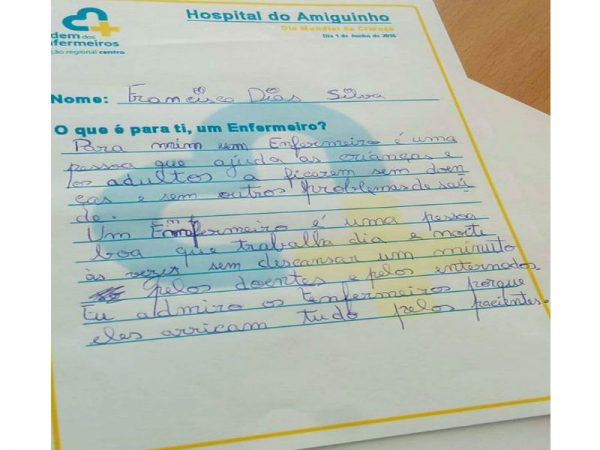 Hospital do Amiguinho
Dia Mundial da Criança
Dia 1 de Junho de 2016
dem dos
nfermeiros
ção regional centro
Nome: Francisca Dias Silva
O que é para ti, um Enfermeiro?
Para mim um Enfermeiro é uma
pessoa que ajuda as crianças e
os adultos a ficarem sem doen
ças e sem outros problemas de saú
de.
Um Enfermeiro é uma pessoa
boa que trabalha dia e noite
às vezes sem descansar um minuto
pelos doentes e pelos internados.
Eu admiro os Enfermeiros porque
eles arricam tudo pelos pacientes.